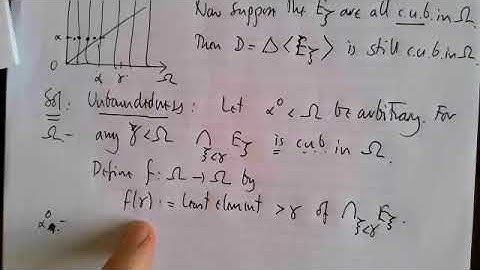 Now suppose the Eξ are all c.u.b. in Ω.
Then D = Δ⟨Eξ⟩ is still c.u.b. in Ω.
α
0
α γ Ω
Sol: Unboundedness: Let α⁰ < Ω be arbitrary. For
Ω- any γ < Ω ⋂ξ<γ Eξ is c.u.b. in Ω.
Define f: Ω → Ω by
f(γ) := least element > γ of ⋂ξ<γ Eξ.